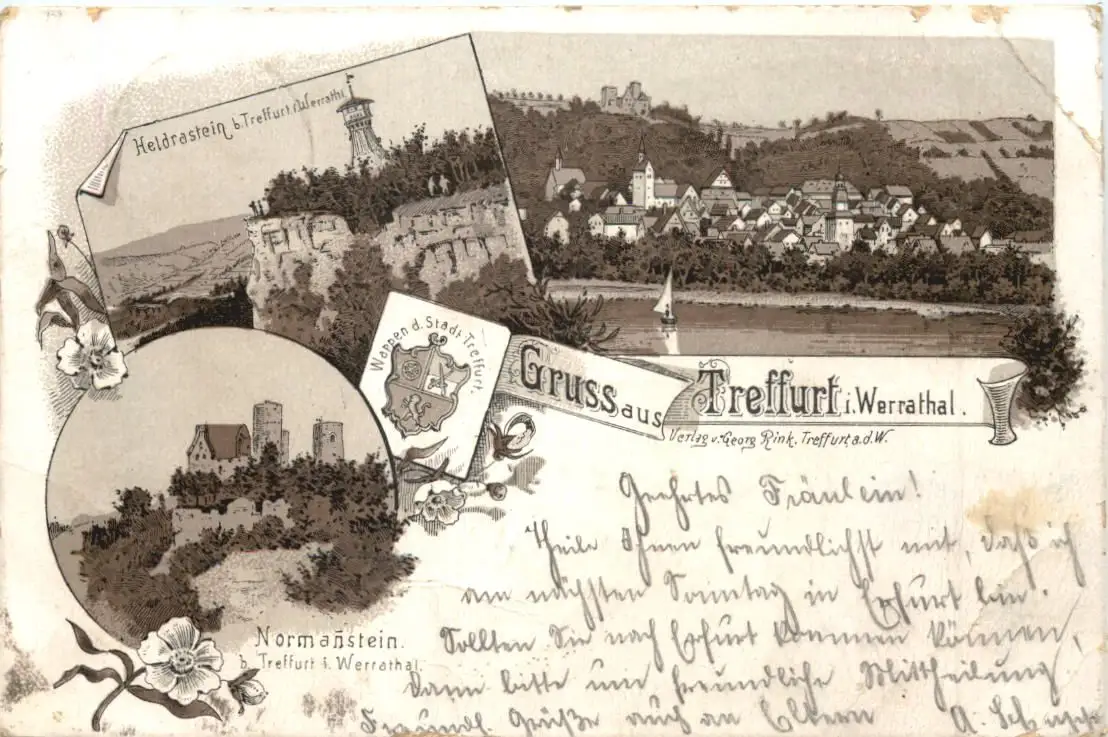 Heldrastein b. Treffurt i. Werrathl.
Wappen d. Stadt Treffurt.
Gruss aus Treffurt i. Werrathal.
Verlag v. Georg Rink, Treffurt a. d. W.
Normanstein.
b. Treffurt i. Werrathal.
Geehrtes Fräulein!
Theile Ihnen freundlichst mit, daß ich
am nächsten Sonntag in Erfurt bin.
Sollten Sie nach Erfurt kommen können,
dann bitte um freundliche Mittheilung
Freundl. Grüße auch an Eltern A.